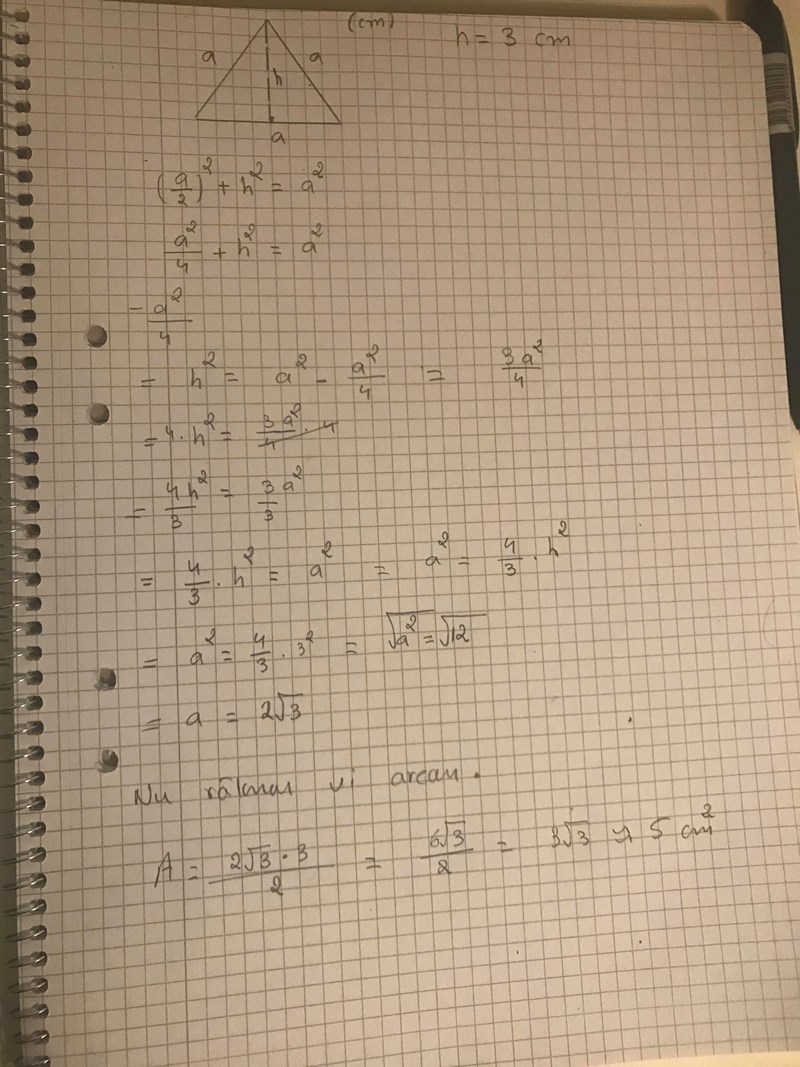 (cm) h = 3 cm
a a
h
a
(a/2)² + h² = a²
a²/4 + h² = a²
- a²/4
= h² = a² - a²/4 = 3a²/4
= 4 · h² = 3a²/4 · 4
= 4h²/3 = 3/3 a²
= 4/3 · h² = a² = a² = 4/3 · h²
= a² = 4/3 · 3² = √a² = √12
= a = 2√3
Nu räknar vi arean.
A = 2√3 · 3/2 = 6√3/2 = 3√3 ≈ 5 cm²